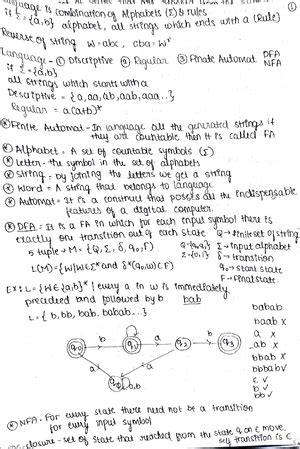 Language is combination of Alphabets (Σ) & rules
if Σ = {a,b} alphabet, all strings which ends with a (Rule)
①
Reverse of string w = abc, cba = wᴿ
Language - ① Discriptive ② Regular ③ Finate Automat DFA
NFA
if Σ = {a,b}
all strings which starts with a
Descriptive = {a, aa, ab, aab, aaa..}
Regular = a(a+b)*
Finite Automat - In language all the generated strings if
they are countable then it is called FA
Alphabet = A set of countable symbols (Σ)
Letter - the symbol in the set of alphabets
String - by joining the letters we get a string
Word = A string that belongs to language
Automat = It is a construct that posses all the indispensable
features of a digital computer.
DFA = It is a FA in which for each input symbol there is
exactly one transition out of each state
Q → finite set of string
5 tuple → M = {Q, Σ, δ, q₀, F}
Σ → Input alphabet
δ → transition
L(M) = {W|W∈Σ* and δ*(q₀,w) ⊂ F}
q₀ → start state
F → Final state.
Ex: L = {W∈{a,b}* | every a in w is immediately
precaded and followed by b bab
L = { b, bb, bab, babab...}
babab
baab x
a x
ab x
bbab x
bbbab v
ε ✓
b ✓
bb ✓
q₀ b q₁ a q₂ b q₃
b
a a
a,b
NFA - For every state there need not be a transition
for every input symbol
closure - set of state that reached from the state q on ε move.
self transition is ε